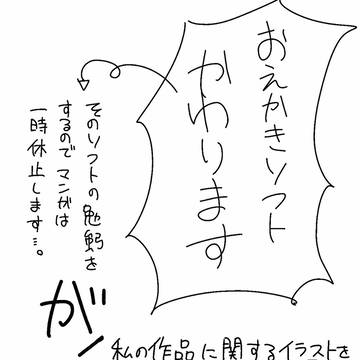 おえかきソフト
かわります
そのソフトの勉強を
するのでマンガは
一時休止します…。
が
私の作品に関するイラストを